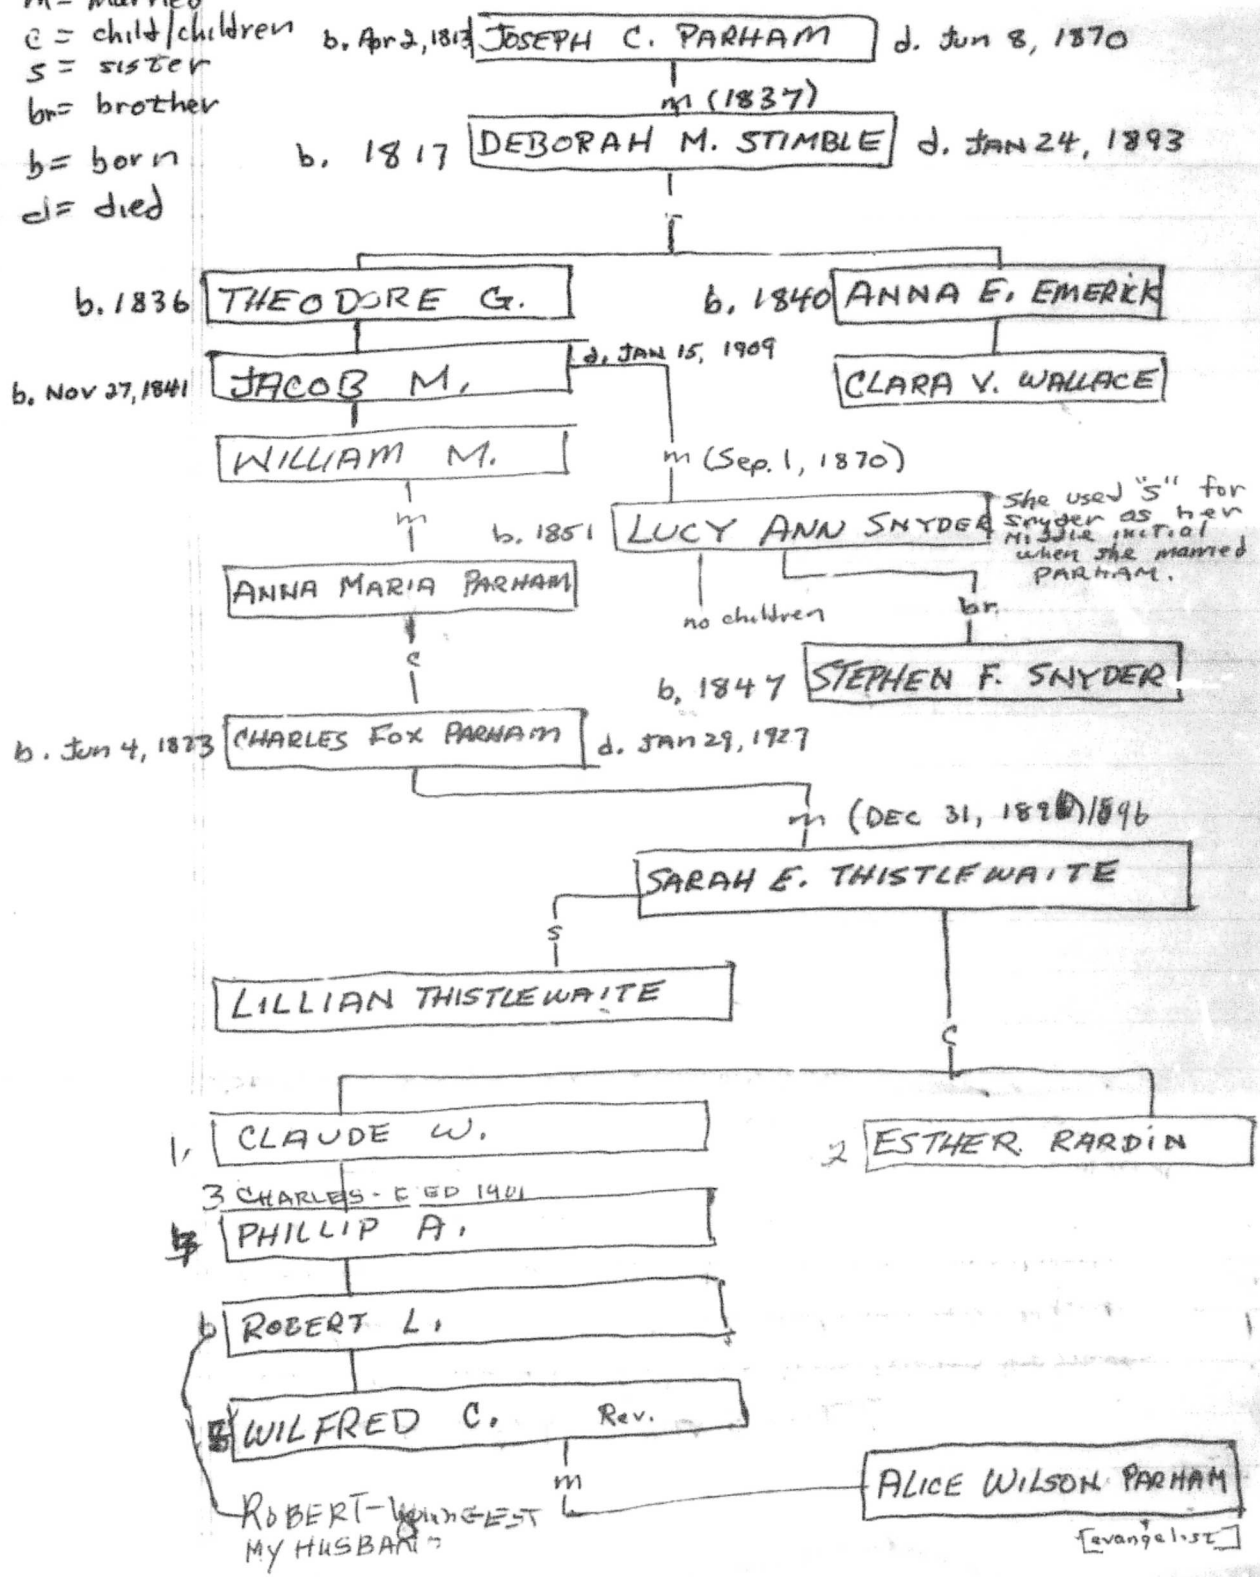 m = married
c = child/children
s = sister
br = brother
b = born
d = died
b. Apr 2, 1813 JOSEPH C. PARHAM d. Jun 8, 1870
m (1837)
b. 1817 DEBORAH M. STIMBLE d. JAN 24, 1893
b. 1836 THEODORE G.
b. 1840 ANNA E. EMERICK
b. Nov 27, 1841 JACOB M. d. JAN 15, 1909
CLARA V. WALLACE
WILLIAM M.
m (Sep. 1, 1870)
m
b. 1851 LUCY ANN SNYDER
She used "S" for
Snyder as her
Middle initial
when she married
PARHAM.
ANNA MARIA PARHAM
no children
br.
c
b. 1847 STEPHEN F. SNYDER
b. Jun 4, 1873 CHARLES FOX PARHAM d. JAN 29, 1927
m (DEC 31, 1896)/1896
SARAH E. THISTLEWAITE
s
LILLIAN THISTLEWAITE
c
1. CLAUDE W.
2 ESTHER RARDIN
3 CHARLES - DIED 1901
PHILLIP A.
6 ROBERT L.
WILFRED C. Rev.
m
ALICE WILSON PARHAM
[evangelist]
ROBERT - YOUNGEST
MY HUSBAND